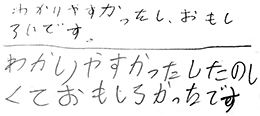 わかりやすかったし、おもし
ろいです。
わかしりやすかったしたのし
くておもしろかったです